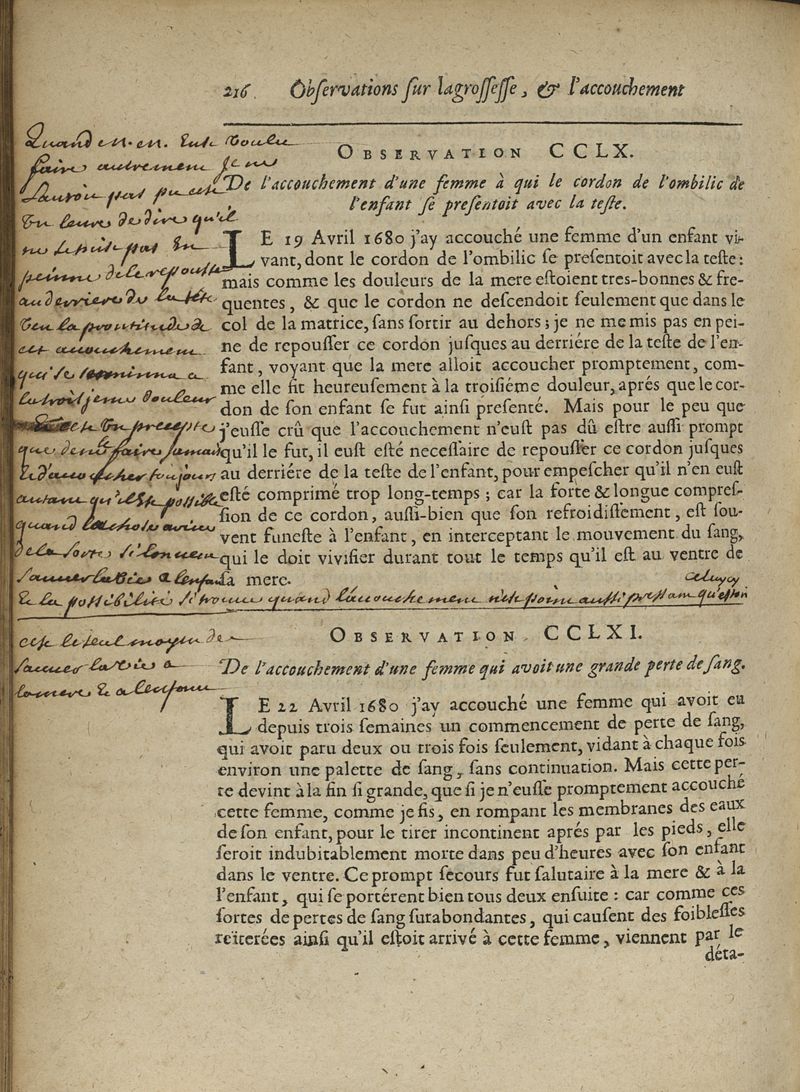 216 Obſervations ſur lagroſſeſſe, & l'accouchement
OBSERVATION CCLX.
De l'accouchement d'une femme à qui le cordon de l'ombilic de
l'enfant ſe preſentoit avec la teſte.
LE 19 Avril 1680 j'ay accouché une femme d'un enfant vi-
vant, dont le cordon de l'ombilic ſe preſentoit avec la teſte:
mais comme les douleurs de la mere eſtoient tres-bonnes & fre-
quentes, & que le cordon ne deſcendoit ſeulement que dans le
col de la matrice, ſans ſortir au dehors; je ne me mis pas en pei-
ne de repouſſer ce cordon juſques au derriére de la teſte de l'en-
fant, voyant que la mere alloit accoucher promptement, com-
me elle fit heureuſement à la troiſiéme douleur, aprés que le cor-
don de ſon enfant ſe fut ainſi preſenté. Mais pour le peu que
j'euſſe crû que l'accouchement n'euſt pas dû eſtre auſſi prompt
qu'il le fut, il euſt eſté neceſſaire de repouſſer ce cordon juſques
au derriére de la teſte de l'enfant, pour empeſcher qu'il n'en euſt
eſté comprimé trop long-temps; car la forte & longue compreſ-
ſion de ce cordon, auſſi-bien que ſon refroidiſſement, eſt ſou-
vent funeſte à l'enfant, en interceptant le mouvement du ſang,
qui le doit vivifier durant tout le temps qu'il eſt au ventre de
ſa mere.
OBSERVATION CCLXI.
De l'accouchement d'une femme qui avoit une grande perte de ſang.
LE 22 Avril 1680 j'ay accouché une femme qui avoit eu
depuis trois ſemaines un commencement de perte de ſang,
qui avoit paru deux ou trois fois ſeulement, vidant à chaque fois
environ une palette de ſang, ſans continuation. Mais cette per-
te devint à la fin ſi grande, que ſi je n'euſſe promptement accouché
cette femme, comme je fis, en rompant les membranes des eaux
de ſon enfant, pour le tirer incontinent aprés par les pieds, elle
ſeroit indubitablement morte dans peu d'heures avec ſon enfant
dans le ventre. Ce prompt ſecours fut ſalutaire à la mere & à la
l'enfant, qui ſe portérent bien tous deux enſuite: car comme ces
ſortes de pertes de ſang ſurabondantes, qui cauſent des foibleſſes
reïterées ainſi qu'il eſtoit arrivé à cette femme, viennent par le
déta-
Quand
autrement je
pas pu
de dire qu'il
pas
peine de le repousser
au derriere de la tete
la promtitude de
cet accouchement
qui se termina a
la troisieme douleur
precepte
jamais
toujours
autant qu'il est possible
quand la chose arrive
de la sorte
sauver la vie a l'enfant
quand l'accouchement n'est point aussi pressant qu'estoit
celuy cy
c'est le seul moyen de
sauver la vie a
la mere & a l'enfant